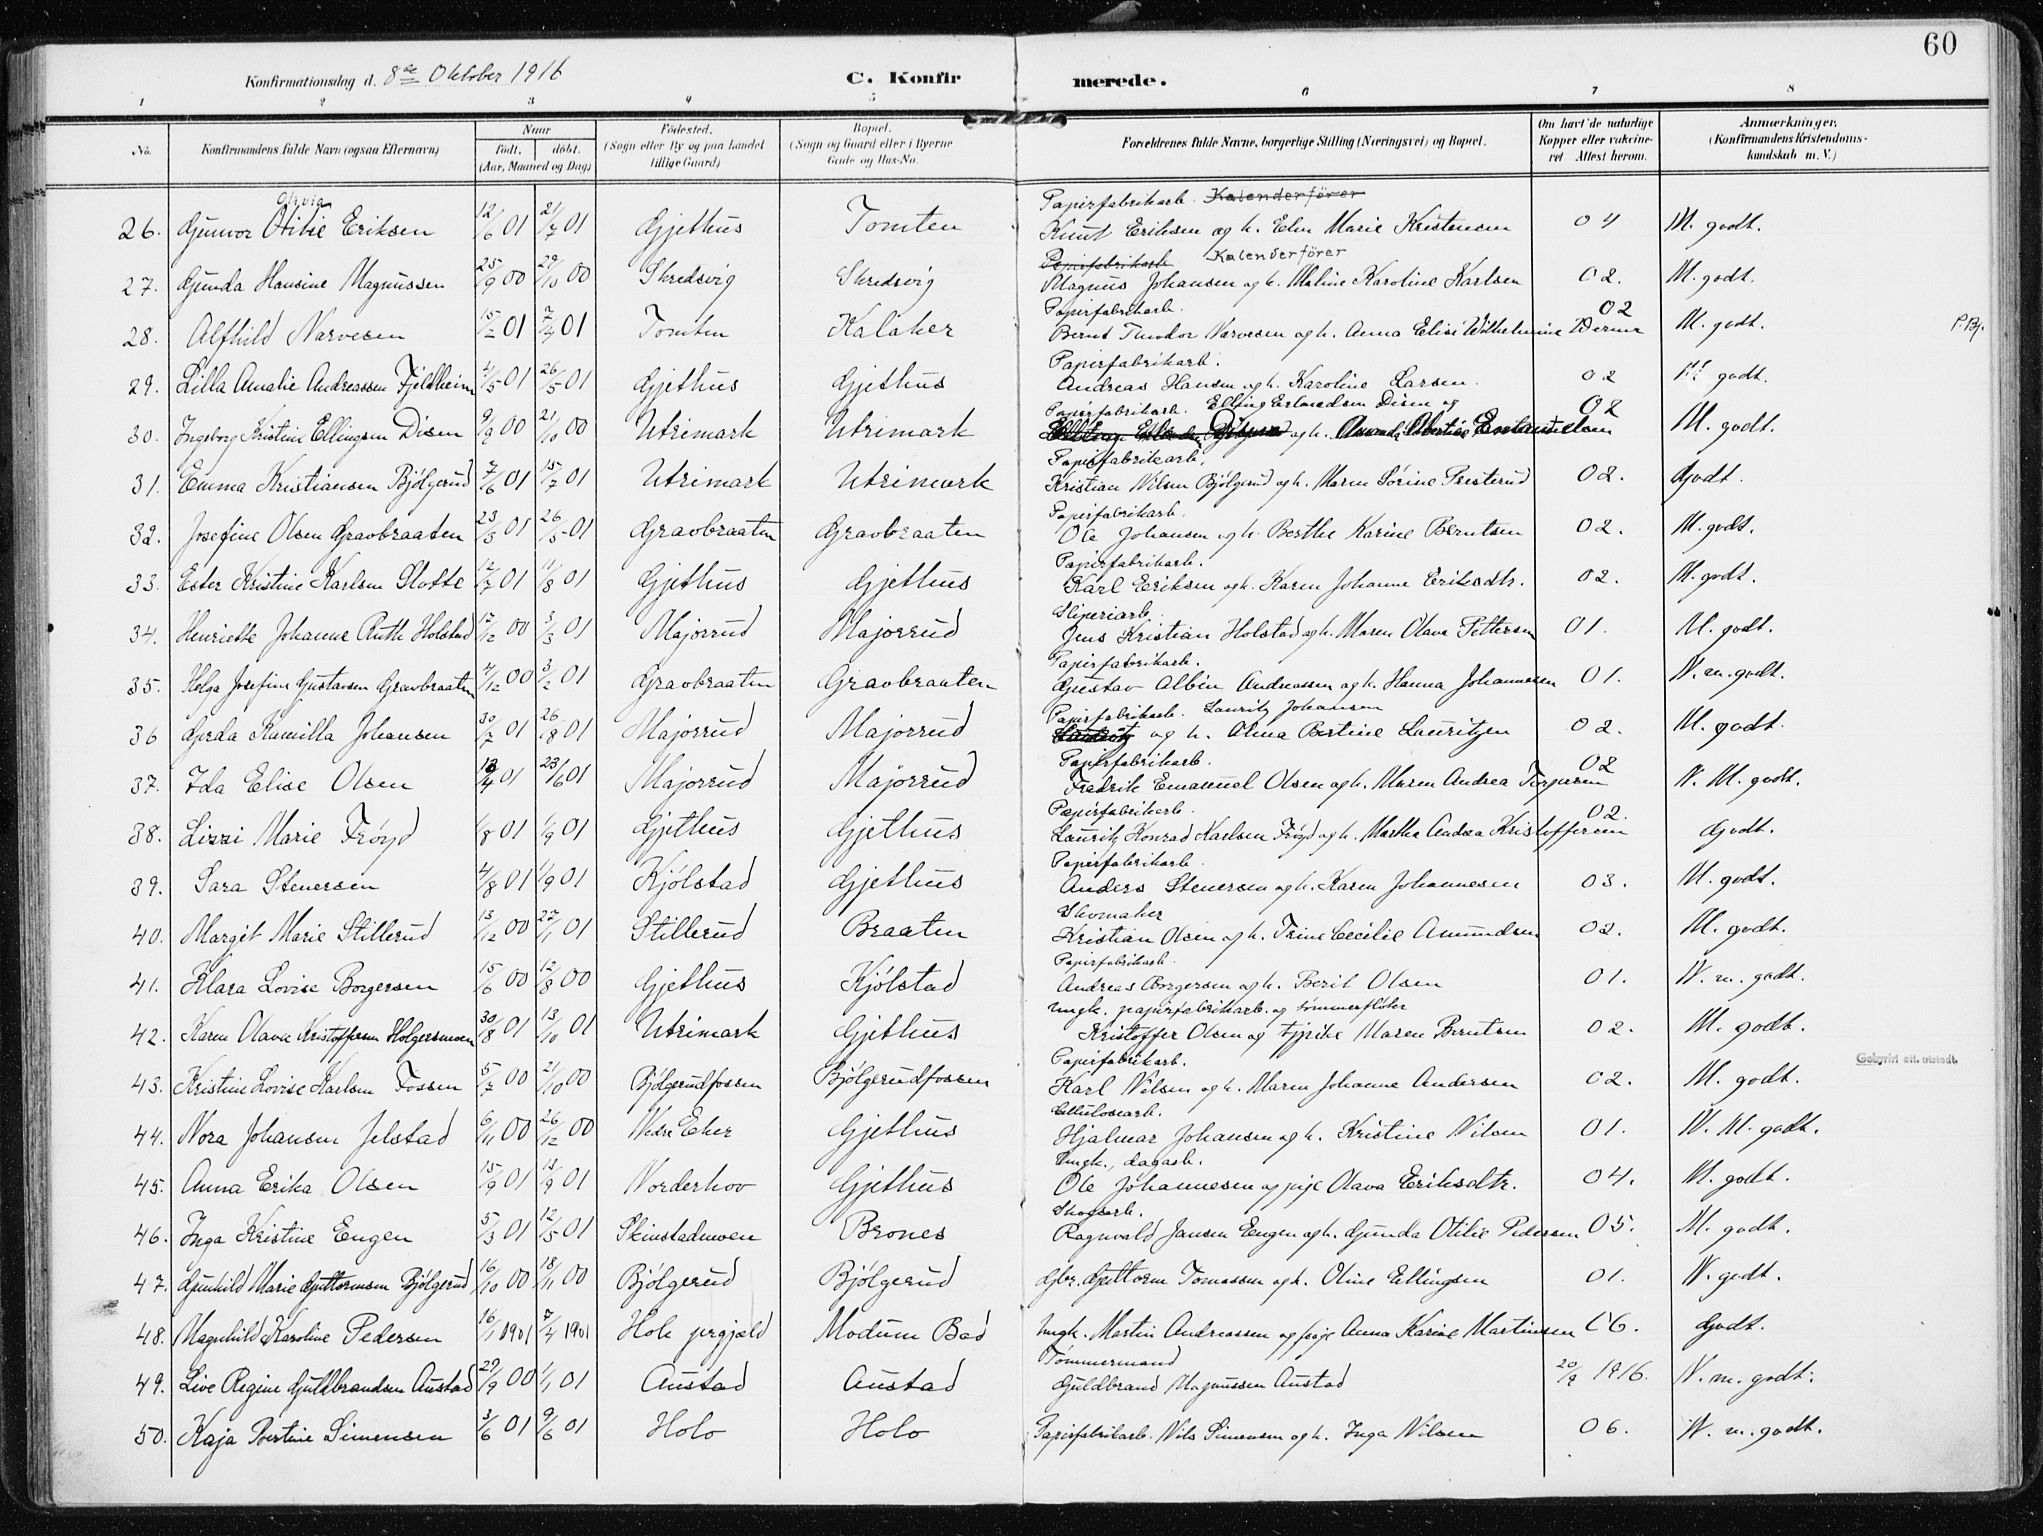 60
Konfirmationsdag d. 8de Oktober 1916 C. Konfirmerede.
1 2 3 4 5 6 7 8
No. Konfirmandens fulde Navn (ogsaa Efternavn) Naar Født. døbt. (Aar, Maaned og Dag) Fødested. (Sogn eller By og paa Landet tillige Gaard) Bopæl. (Sogn og Gaard eller i Byerne Gade og Hus-No. Forældrenes fulde Navne, borgerlige Stilling (Næringsvei) og Bopæl. Om havt de naturlige Kopper eller vaccineret Attest herom. Anmærkninger. (Konfirmandens Kristendomskundskab m. V.)
Papirfabrikarb. Kalenderfører
26. Gunvor Otilie Eriksen 12/6 01 21/7 01 Gjethus Tomten Knut Eriksen og h. Elen Marie Kristensen 04 M. godt.
Papirfabrikarb Kalenderfører
27. Gunda Hansine Magnussen 25/9 00 29/10 00 Skredsvig Skredsvig Magnus Johansen og h. Maline Karoline Karlsen 02. M. godt.
Papirfabrikarb.
28. Alfhild Narvesen 15/2 01 7/4 01 Tomten Kalaker Bernt Teodor Narvesen og h. Anna Elise Wilhelmine Werner 02 M. godt. P.Bj.
Papirfabrikarb.
29. Lilla Amalie Andreassen Fjeldheim 4/5 01 26/5 01 Gjethus Gjethus Andreas Hansen og h. Karoline Larsen. 02 M. godt.
Papirfabrikarb. Elling Erlandsen Disen og
30. Ingeborg Kristine Ellingsen Disen 9/9 00 21/10 00 Utrimark Utrimark og h. Amanda Albertine 02 M. godt.
Papirfabrikarb.
31. Emma Kristiansen Bjølgerud 7/6 01 15/7 01 Utrimark Utrimark Kristian Nilsen Bjølgerud og h. Maren Sørine Presterud 02. Godt.
Papirfabrikarb.
32. Josefine Olsen Gravbraaten 23/3 01 26/5 01 Gravbraaten Gravbraaten Ole Johansen og h. Berthe Karine Berntsen 02. M. godt.
Papirfabrikarb.
33. Ester Kristine Karlsen Slotte 12/7 01 11/8 01 Gjethus Gjethus Karl Eriksen og h. Karen Johanne Eriksdtr. 02. M. godt.
Sliperiarb.
34. Henriette Johanne Ruth Holstad 12/12 00 3/3 01 Majorrud Majorrud Jens Kristian Holstad og h. Maren Olava Pettersen 01. M. godt.
Papirfabrikarb.
35. Helga Josefine Gustavsen Gravbraaten 4/12 00 3/2 01 Gravbraaten Gravbraaten Gustav Albin Andreassen og h. Hanna Johannesen 01. N. m. godt.
Papirfabrikarb. Lauritz Johansen
36 Gerda Kamilla Johansen 30/7 01 26/8 01 Majorrud Majorrud og h. Alma Bertine Lauritzen 02. M. godt.
Papirfabrikarb.
37. Ida Elise Olsen /4 01 23/6 01 Majorrud Majorrud Fredrik Emanuel Olsen og h. Maren Andrea Torgersen 02 N. M. godt.
Papirfabrikarb.
38. Lizzi Marie Frøyd 1/8 01 1/9 01 Gjethus Gjethus Lauritz Konrad Karlsen Frøyd og h. Martha Andrea Kristoffersen 02. Godt.
Papirfabrikarb.
39. Sara Stenersen 4/8 01 1/9 01 Kjølstad Gjethus Anders Stenersen og h. Karen Johannesen 03. M. godt.
Skomaker
40. Margit Marie Stillerud 13/12 00 27/1 01 Stillerud Braaten Kristian Olsen og h. Trine Cecilie Amundsen 02. M. godt.
Papirfabrikarb.
41. Klara Lovise Borgersen 15/6 00 12/8 00 Gjethus Kjølstad Andreas Borgersen og h. Berit Olsen 01. N. m. godt.
Ungk. papirfabrikarb. og tømmerfløter
42. Karen Olava Kristoffersen Holgersmoen 30/8 01 13/10 01 Utrimark Gjethus Kristoffer Olsen og pike Maren Berntsen 02. M. godt.
Papirfabrikarb.
43. Kristine Lovise Karlsen Fossen 5/7 00 21/10 00 Bjølgerudfossen Bjølgerudfossen Karl Nilsen og h. Maren Johanne Andersen 02. M. godt. Gebyrfri att. utstedt.
Cellulosearb.
44. Nora Johansen Jelstad 6/11 00 26/12 00 Nedre Eker Gjethus Hjalmar Johansen og h. Kristine Nilsen 01. N. M. godt.
Ungk., dagarb.
45. Anna Erika Olsen 15/9 01 13/9 01 Norderhov Gjethus Ole Johannesen og pige Olava Eriksdtr. 04. M. godt.
Skogsarb.
46. Inga Kristine Engen 5/3 01 12/5 01 Skinstadmoen Brones Ragnvald Jansen Engen og h. Gunda Otilie Pedersen 05. M. godt.
47. Gunhild Marie Guttormsen Bjølgerud 16/10 00 18/11 00 Bjølgerud Bjølgerud Gbr. Guttorm Tomassen og h. Oline Ellingsen 01. N. godt.
48. Magnhild Karoline Pedersen 16/1 1901 7/4 1901 Hole prgjæld Modum Bad Ungk. Martin Andreassen og pige Anna Karine Martinsen 06. Godt.
Tømmermand
49. Live Regine Guldbrandsen Austad 29/9 00 1/1 01 Austad Austad Guldbrand Magnussen Austad 20/9 1916. N. m. godt.
50. Kaja Bertine Simensen 3/6 01 9/6 01 Holo Holo Papirfabrikarb. Nils Simensen og h. Inga Nilsen 06. N. m. godt.